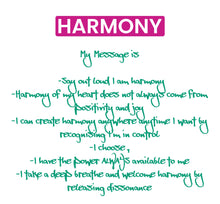 HARMONY
My Message is
-Say out loud I am harmony
-Harmony of my heart does not always come from
positivity and joy
-I can create harmony anywhere anytime I want by
recognising I'm in control
-I choose,
-I have the power always available to me
-I take a deep breathe and welcome harmony by
releasing dissonance